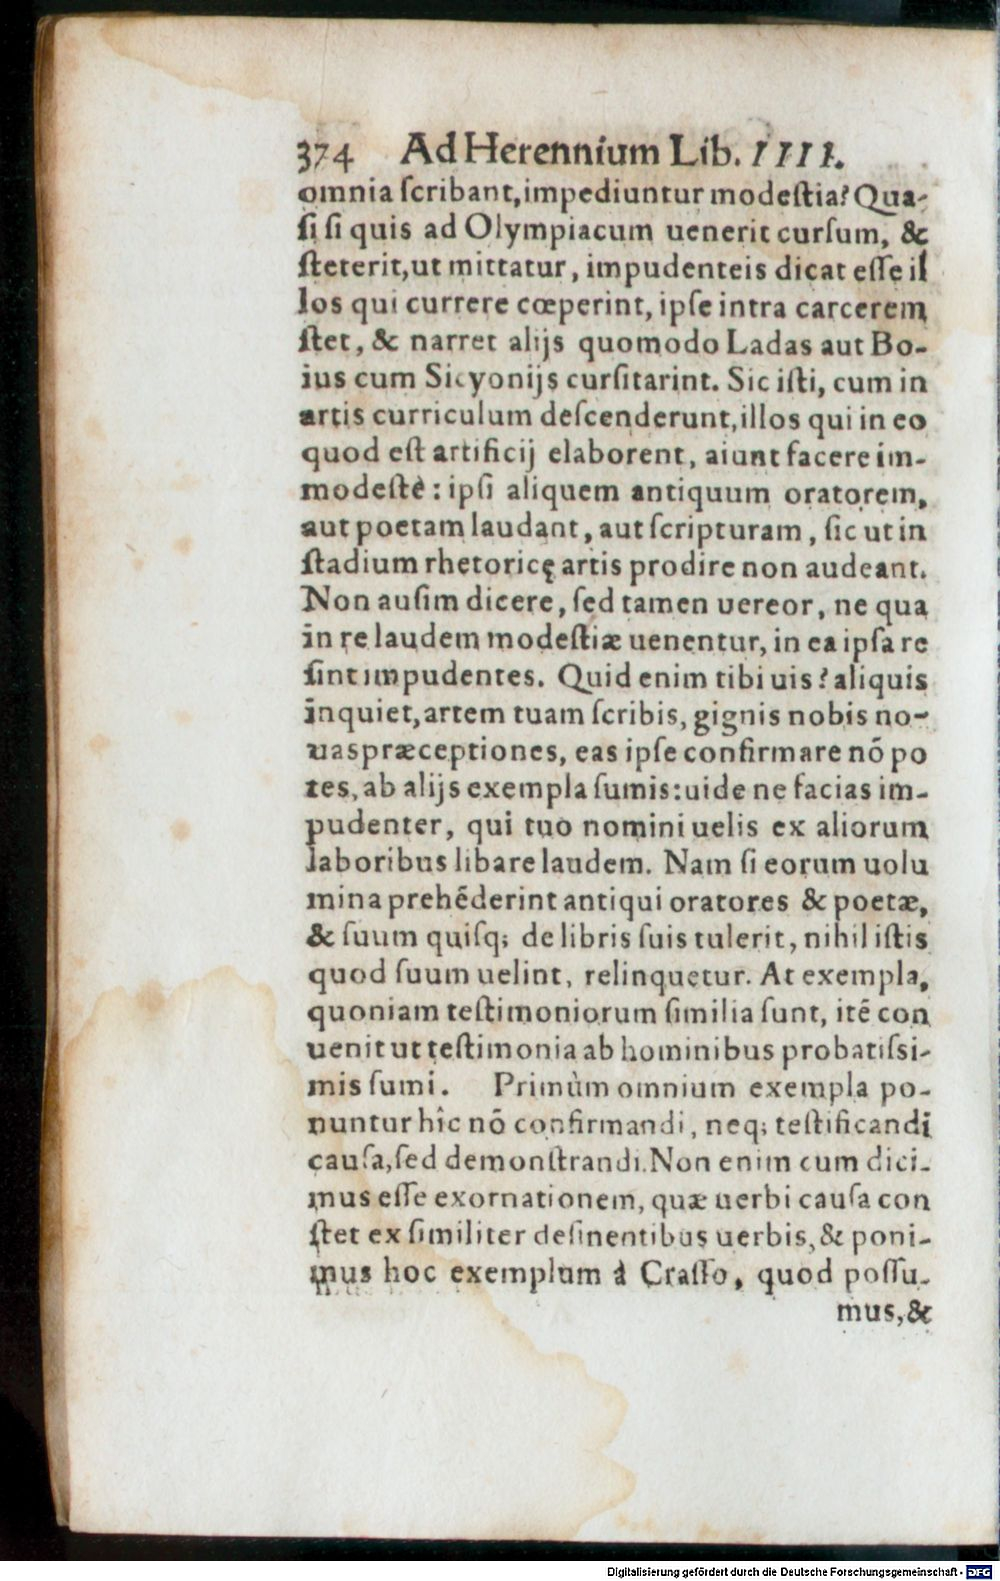 374 Ad Herennium Lib. IIII.
omnia ſcribant,impediuntur modeſtia? Qua-
ſi ſi quis ad Olympiacum uenerit curſum, &
ſteterit,ut mittatur, impudenteis dicat eſſe il
los qui currere cœperint, ipſe intra carcerem
ſtet, & narret alijs quomodo Ladas aut Bo-
ius cum Sicyonijs curſitarint. Sic iſti, cum in
artis curriculum deſcenderunt,illos qui in eo
quod eſt artificij elaborent, aiunt facere im-
modeſtè: ipſi aliquem antiquum oratorem,
aut poetam laudant, aut ſcripturam, ſic ut in
ſtadium rhetoricę artis prodire non audeant.
Non auſim dicere, ſed tamen uereor, ne qua
in re laudem modeſtiæ uenentur, in ea ipſa re
ſint impudentes. Quid enim tibi uis? aliquis
inquiet,artem tuam ſcribis, gignis nobis no-
uas præceptiones, eas ipſe confirmare nõ po
tes, ab alijs exempla ſumis:uide ne facias im-
pudenter, qui tuo nomini uelis ex aliorum
laboribus libare laudem. Nam ſi eorum uolu
mina prehẽderint antiqui oratores & poetæ,
& ſuum quiſq; de libris ſuis tulerit, nihil iſtis
quod ſuum uelint, relinquetur. At exempla,
quoniam teſtimoniorum ſimilia ſunt, itẽ con
uenit ut teſtimonia ab hominibus probatiſsi-
mis ſumi. Primùm omnium exempla po-
nuntur hîc nõ confirmandi, neq; teſtificandi
cauſa,ſed demonſtrandi.Non enim cum dici-
mus eſſe exornationem, quæ uerbi cauſa con
ſtet ex ſimiliter deſinentibus uerbis,& poni-
mus hoc exemplum à Craſſo, quod poſſu-
mus,&
Digitalisierung gefördert durch die Deutsche Forschungsgemeinschaft - DFG